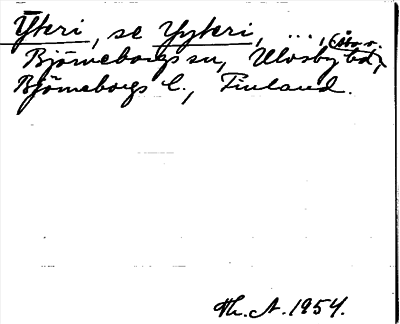 Ytteri, se Yyteri, ..., (Åbo o.
Björneborgs sn, Ulvsby hd,
Björneborgs l., Finland.
Th. A. 1954.